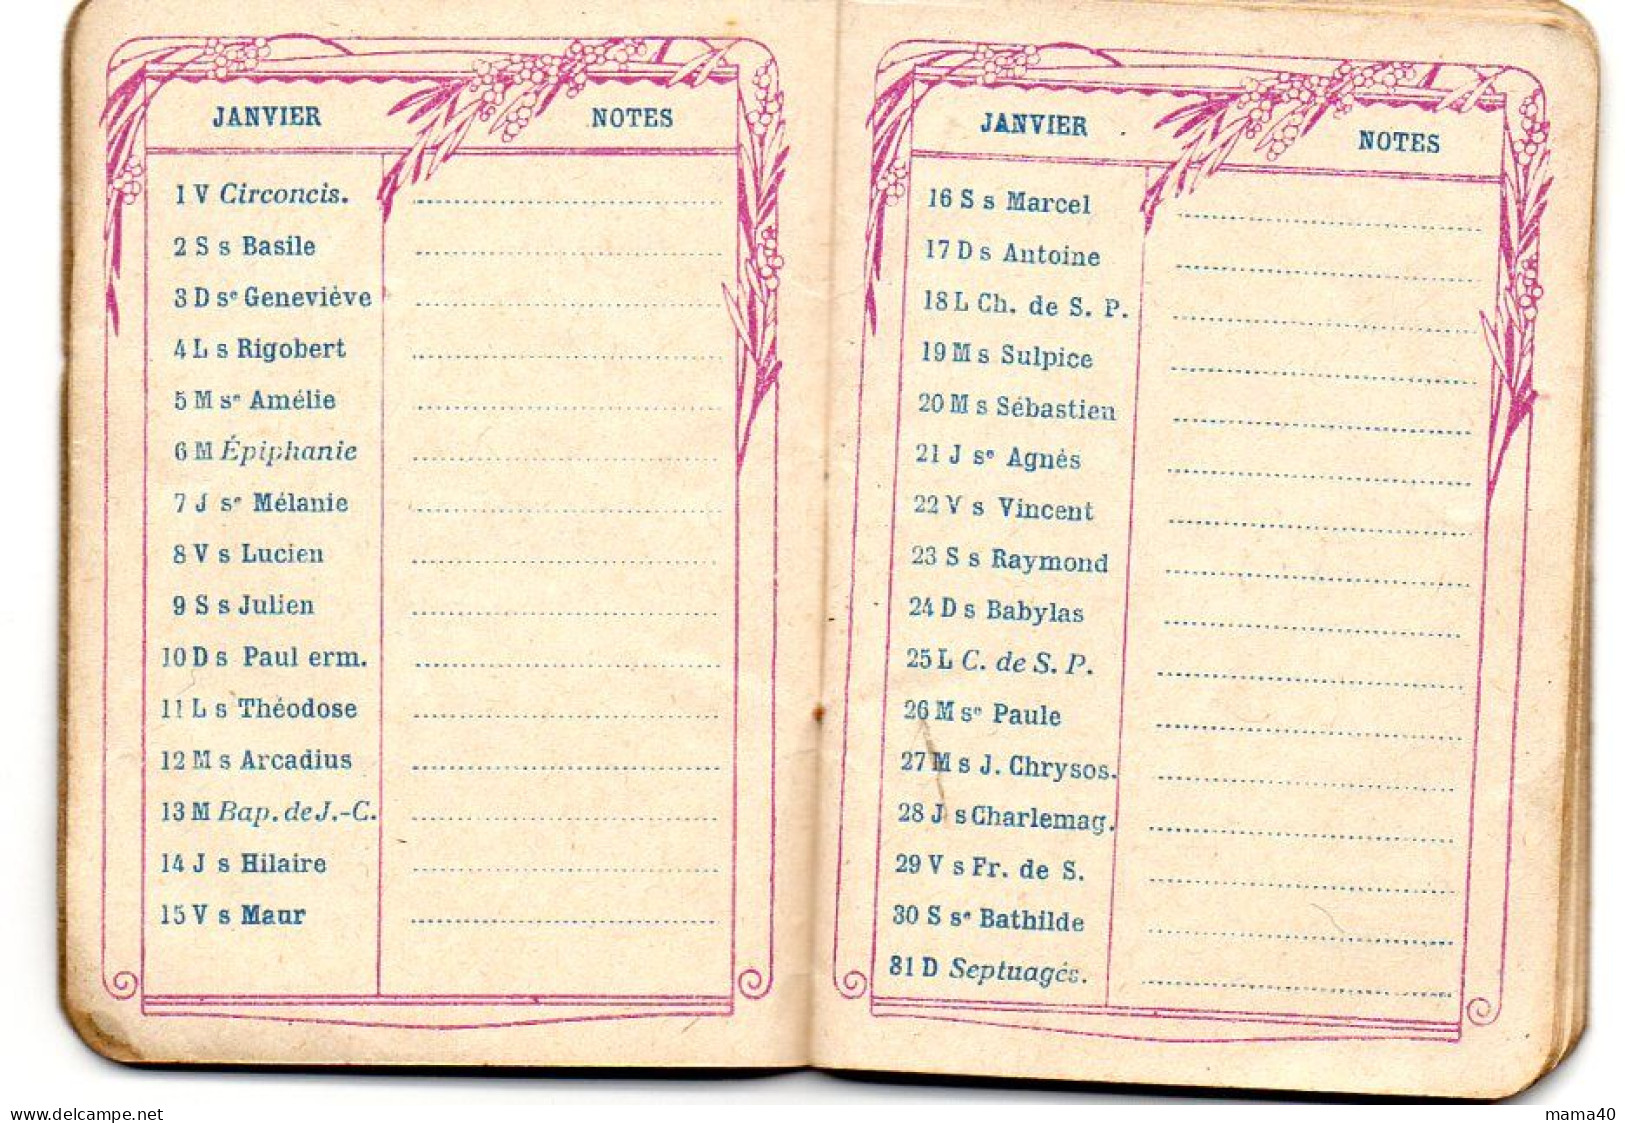 JANVIER NOTES
1 V Circoncis.
2 S s Basile
3 D sᵉ Geneviève
4 L s Rigobert
5 M sᵉ Amélie
6 M Épiphanie
7 J sᵉ Mélanie
8 V s Lucien
9 S s Julien
10 D s Paul erm.
11 L s Théodose
12 M s Arcadius
13 M Bap. de J.-C.
14 J s Hilaire
15 V s Maur
JANVIER NOTES
16 S s Marcel
17 D s Antoine
18 L Ch. de S. P.
19 M s Sulpice
20 M s Sébastien
21 J sᵉ Agnès
22 V s Vincent
23 S s Raymond
24 D s Babylas
25 L C. de S. P.
26 M sᵉ Paule
27 M s J. Chrysos.
28 J s Charlemag.
29 V s Fr. de S.
30 S sᵉ Bathilde
31 D Septuagés.
www.delcampe.net
mama40